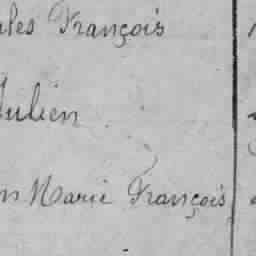 ales François
Julien
n Marie François